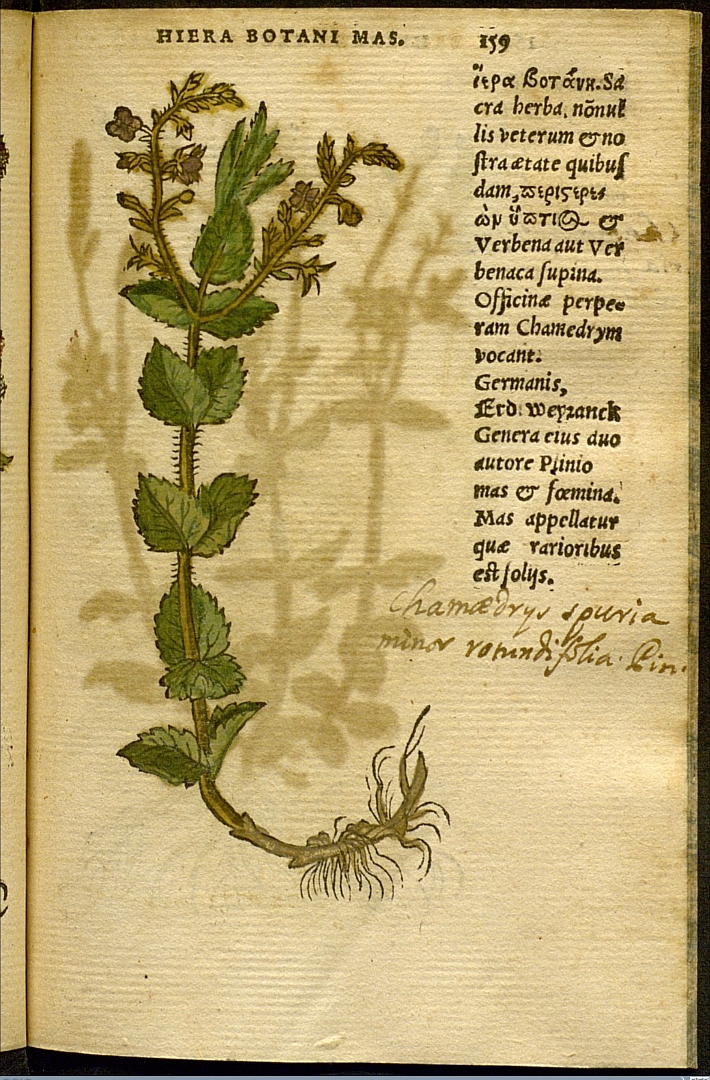 HIERA BOTANI MAS. 159
ἱερα βοτάνη. Sa
cra herba, nõnul
lis veterum & no
stra ætate quibus
dam, περιστερε
ὼμ ὕπτιος &
Verbena aut Ver
benaca supina.
Officinæ perpe
ram Chamedrym
vocant.
Germanis,
Erd. weyranck
Genera eius duo
autore Plinio
mas & fœmina.
Mas appellatur
quæ rarioribus
est folijs.
Chamædrys spuria
minor rotundifolia. Pin.